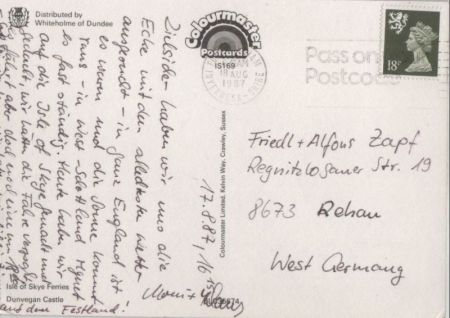 Distributed by
Whiteholme of Dundee
Colourmaster
Postcards
IS169
18 AUG
1987
Pass on
Postcode
18P
haben wir uns die
Ecke mit dem
ausgesucht - in ganz England ist
es warm und die Sonne kommt
raus - in West-Schottland regnet
es fast ständig. Heute haben wir
auf die Isle of Skye gemacht und
wir hatten die Fähre
aber doch noch
auf dem Festland!
17.8.87, 16
Friedl + Alfons Zapf
Regnitzlosauer Str. 19
8673 Rehau
West Germany
Colourmaster Limited, Kelvin Way, Crawley, Sussex
Isle of Skye Ferries
Dunvegan Castle